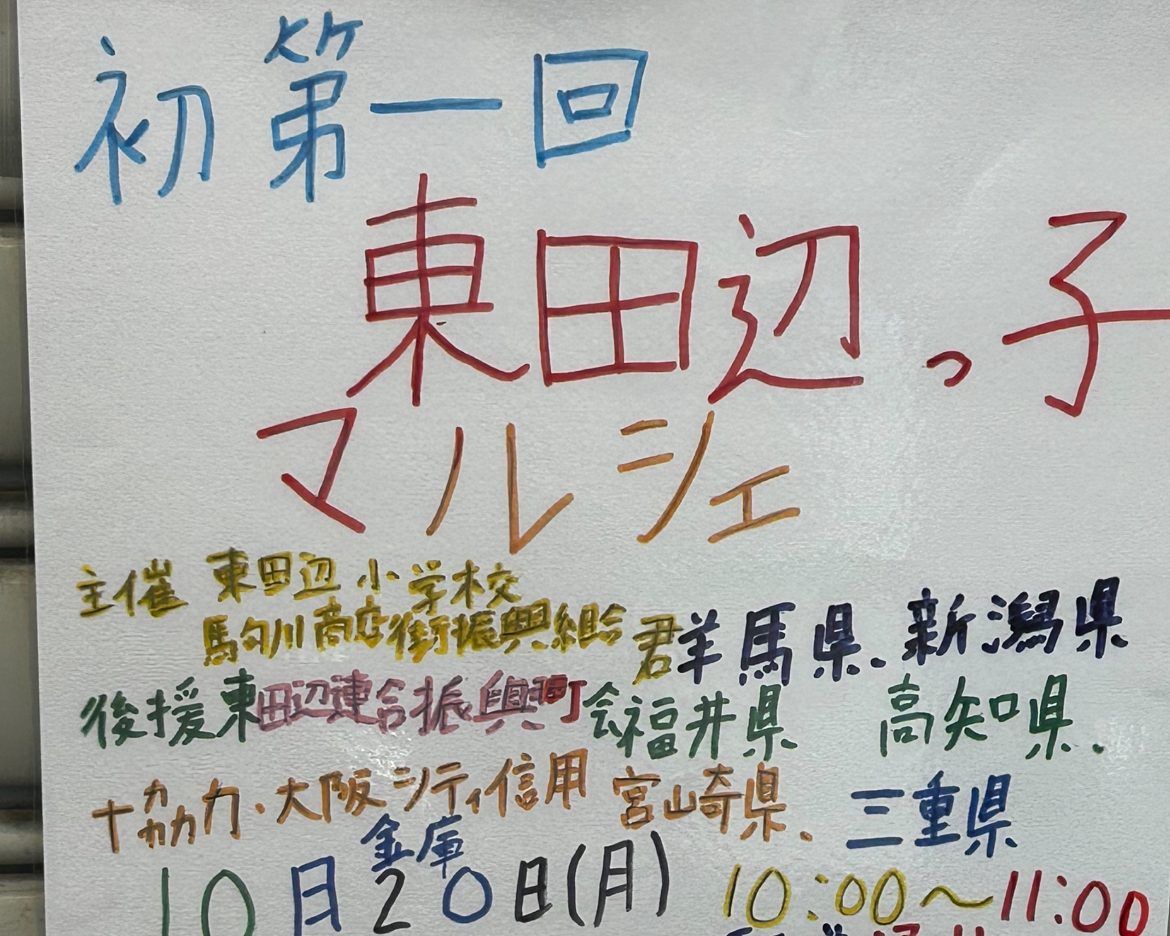 初 第一回
東田辺っ子
マルシェ
主催 東田辺小学校
駒川商店街振興組合 群馬県、新潟県
後援 東田辺連合振興町会 福井県 高知県、
協力・大阪シティ信用金庫 宮崎県、三重県
10月20日(月) 10:00〜11:00